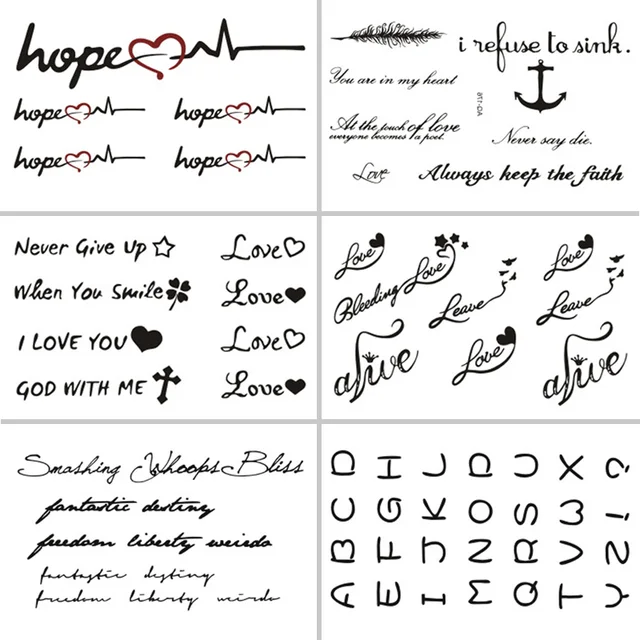 hope
hope hope
hope hope
i refuse to sink.
You are in my heart
QA-118
At the touch of love
everyone becomes a poet.
Never say die.
Love
Always keep the faith
Never Give Up
Love
When You Smile
Love
I LOVE YOU
Love
GOD WITH ME
Love
Love
Love
Love
Bleeding
Leave
Leave
alive
Love
alive
Smashing Whoops Bliss
fantastic destiny
freedom liberty weirdo
fantastic destiny
freedom liberty weirdo
A B C D
E F G H
I J K L
M N O P
Q R S U
T V W X
Y Z ! ?